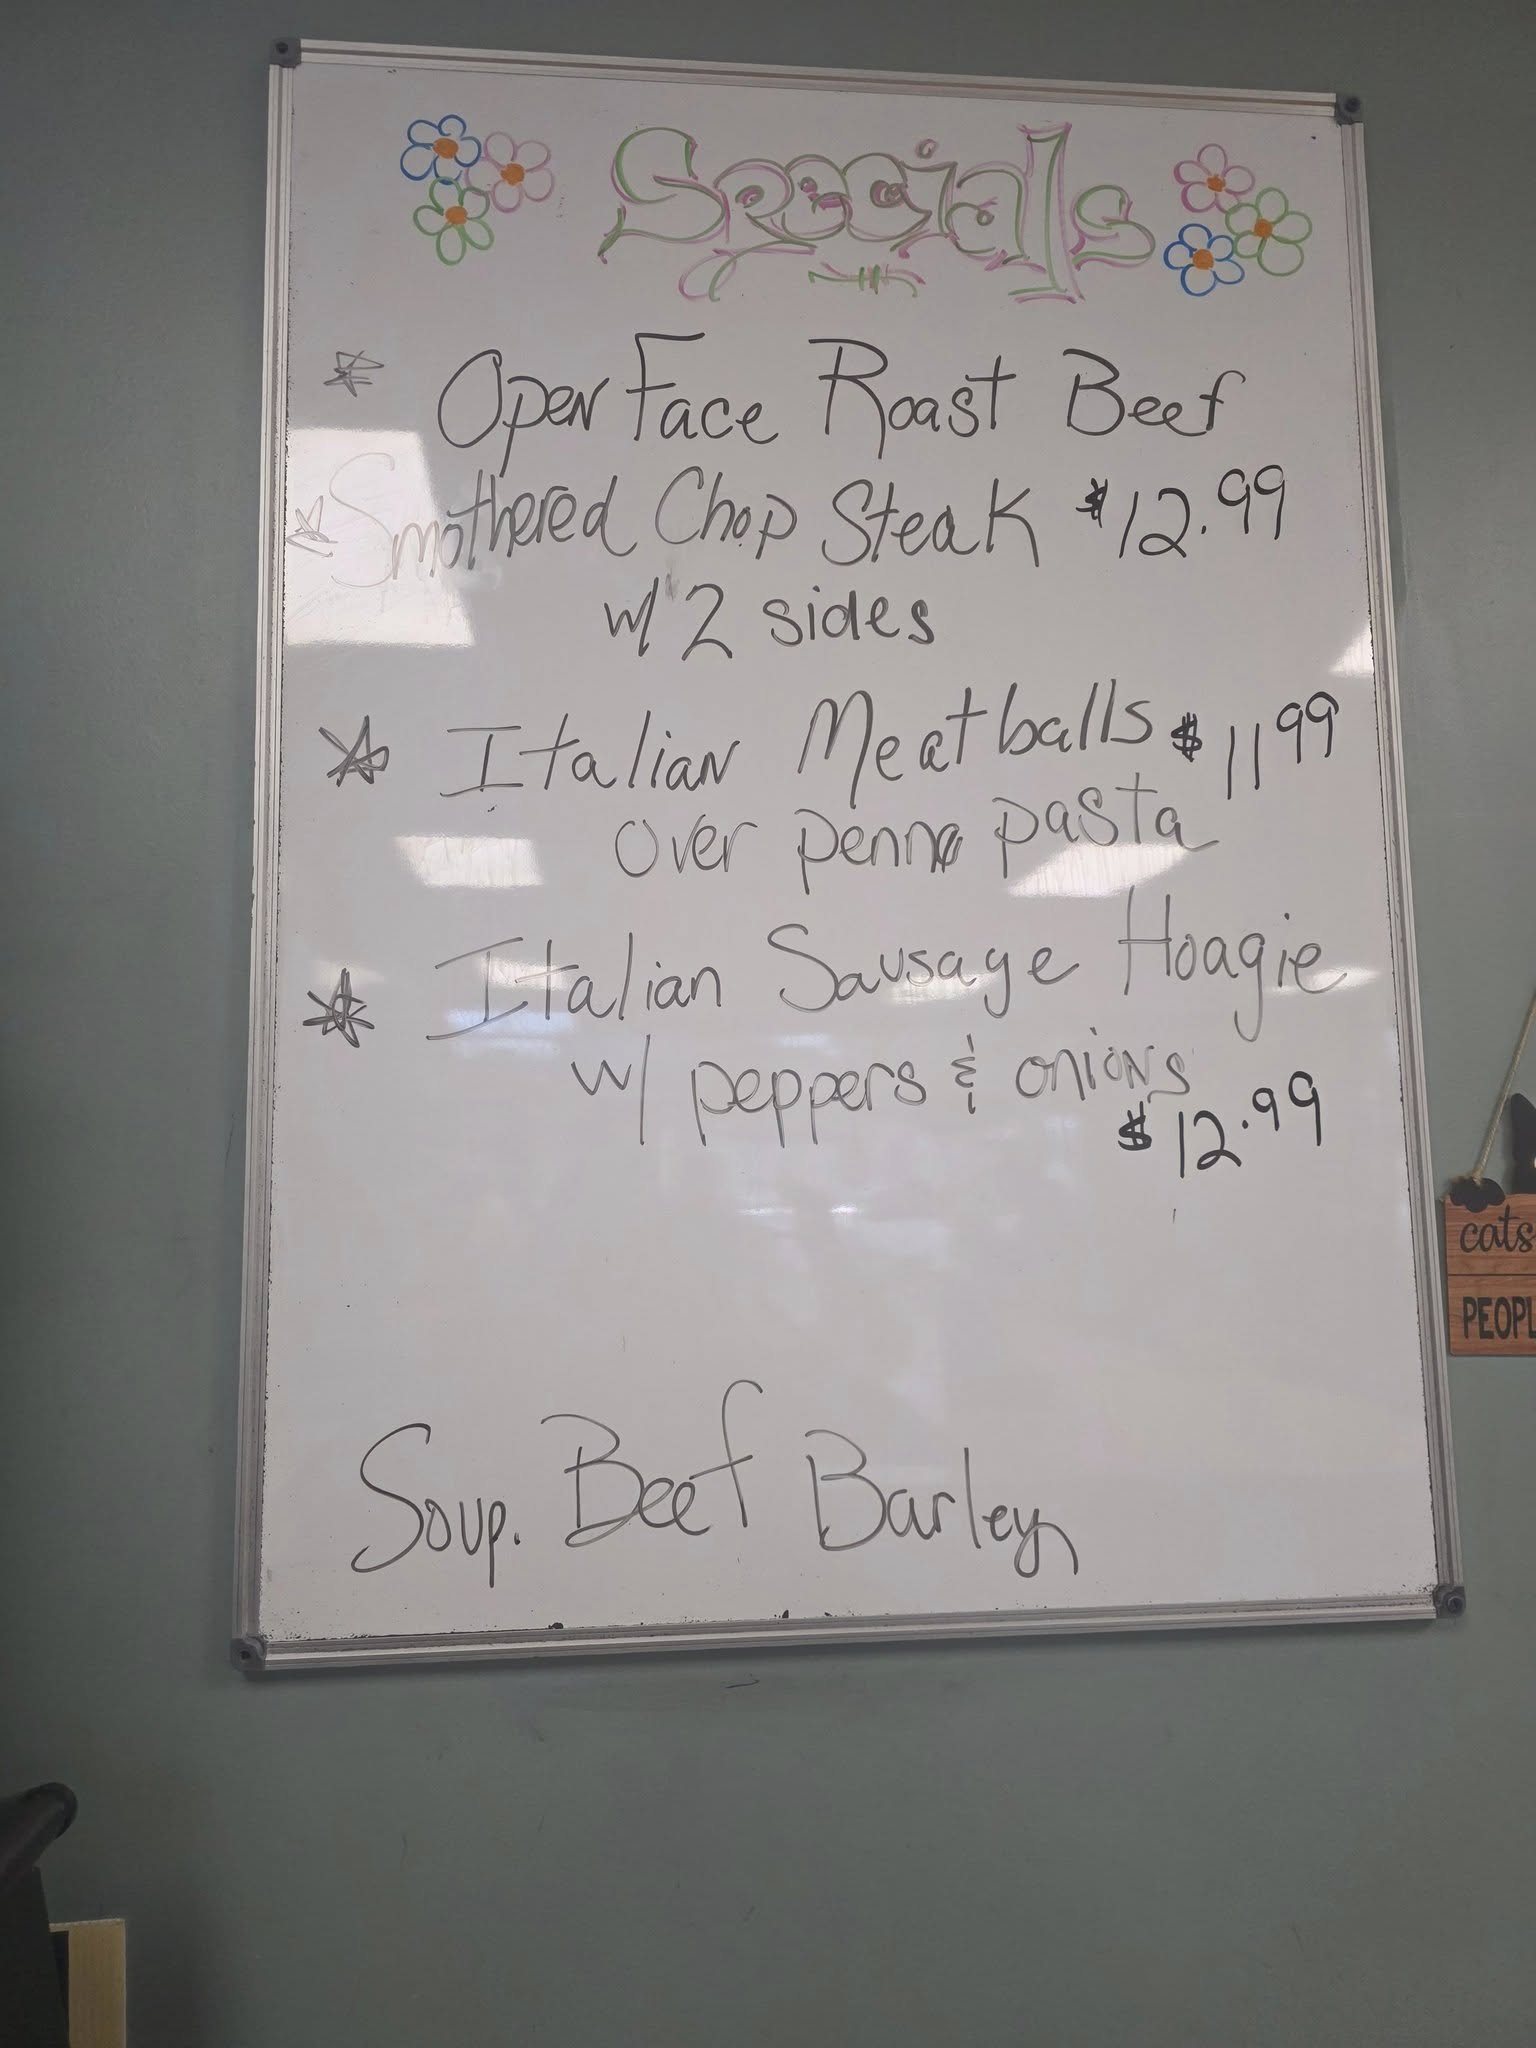 Specials
Open Face Roast Beef
Smothered Chop Steak $12.99
w/ 2 sides
Italian Meatballs $11 99
over penne pasta
Italian Sausage Hoagie
w/ peppers & onions
$12.99
Soup. Beef Barley
cats
PEOPL